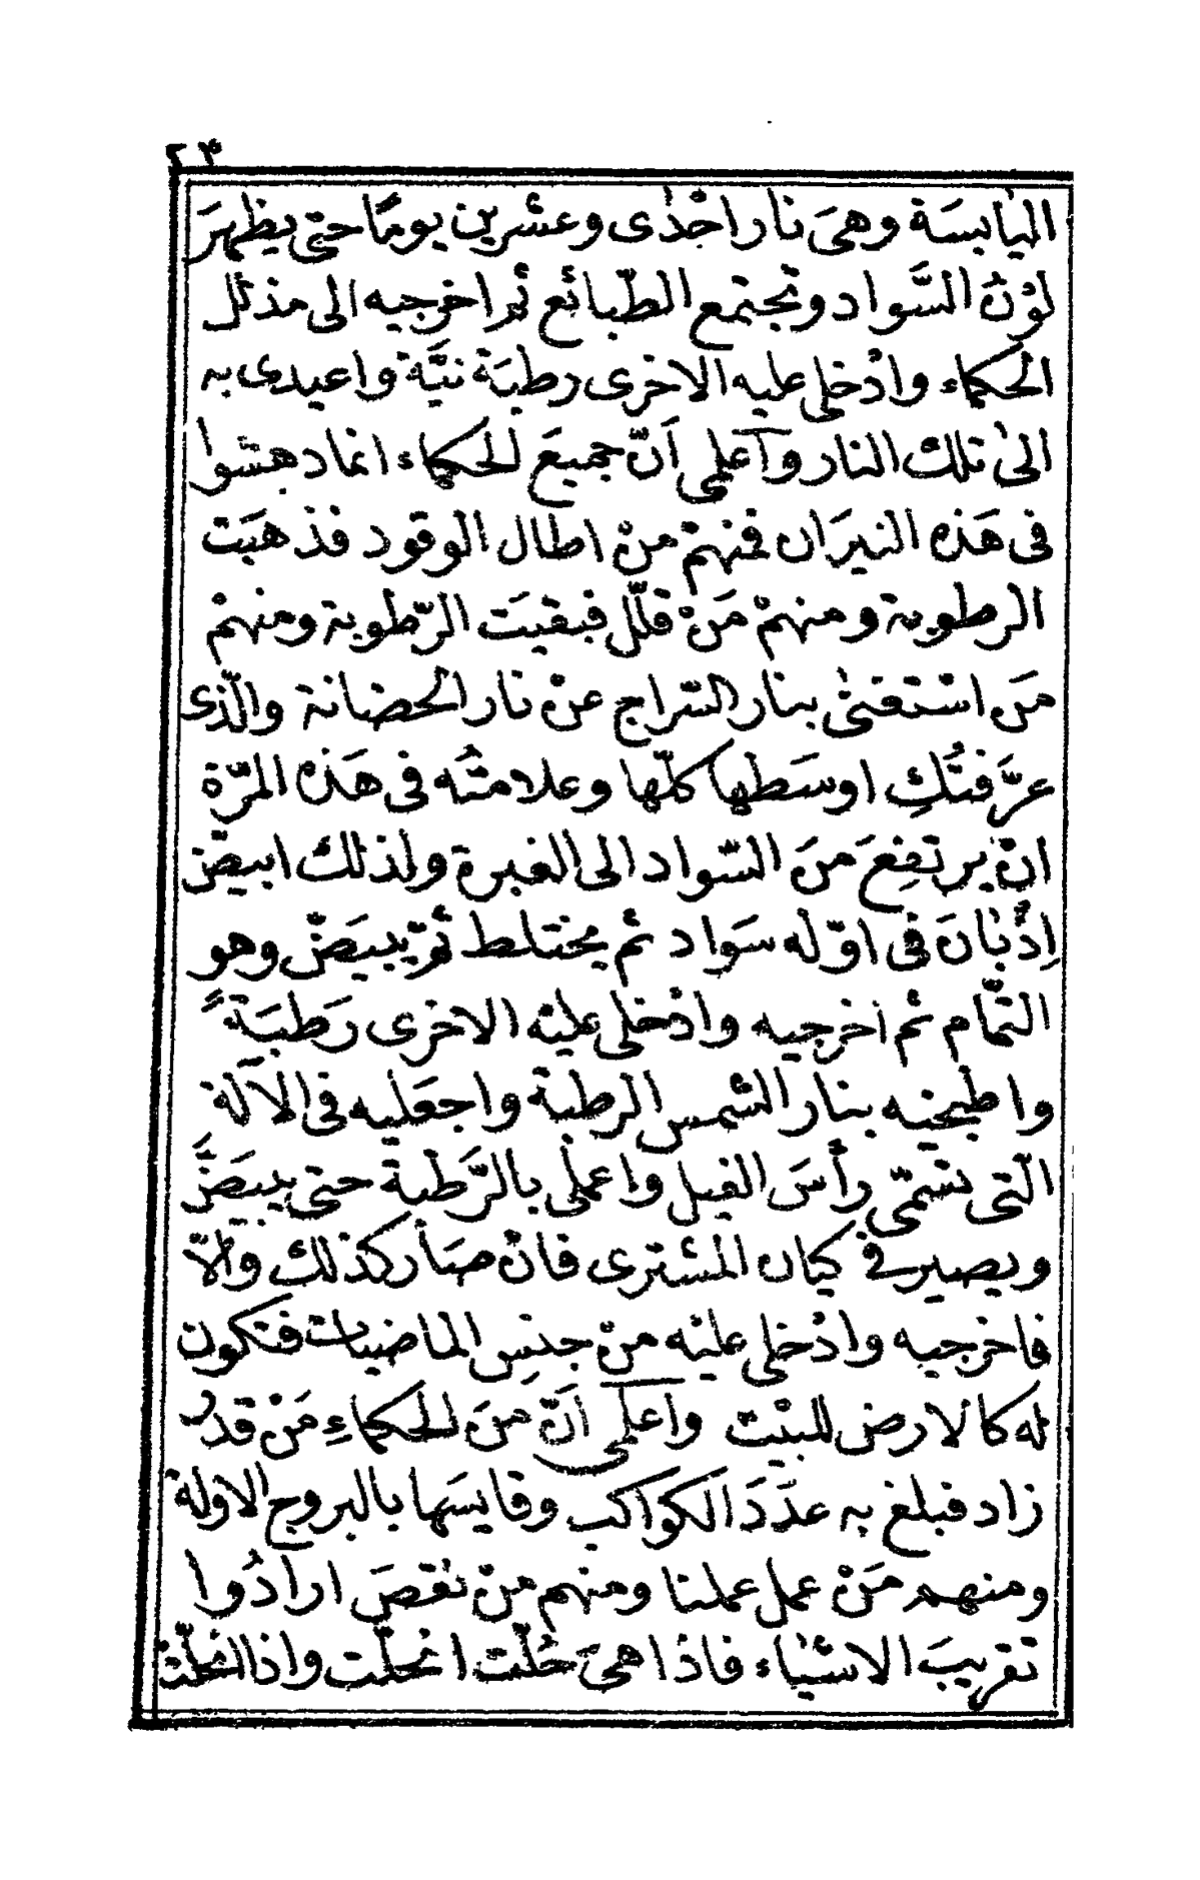 ۲۴
اليابسَة وهىَ نار احْدٰى وعشرين يومًا حتى يظهرَ
لوْنُ السَّواد وتجتمع الطّبائع ثم اخرجيه الى مذلل
الحكماء وادْخلى عليه الاخرى رطبَة نيَّة واعيدى به
الىٰ تلك النار وآعلمى اَنّ جميعَ الحكماء انما دهشوا
فى هَذه النيرَان فمنهمْ منْ اطال الوقود فذهبَت
الرطوبة ومنهمْ مَنْ قلّل فبقيَت الرّطوبة ومنهمْ
مَن اسْتغنىٰ بنار السّراج عنْ نار الحضانة والّذى
عرَّفتُكِ اوسَطها كلّها وعلامتُه فى هَذه المرّة
انْ يرتفِعَ منَ السّواد الى الغبرة ولذلك ابيضّ
اِذْ بٰانَ فى اوّله سَواد ثم يختلط ثمّ يبيَضّ وهو
التّمام ثم اخرجيه وادْخلى عليْه الاخرى رَطبَةً
واطبخيه بنار الشمس الرطبة واجعَليه فى الآلَة
الّتى تسَمّى رأسَ الفيل واعملى بالرَّطبة حتى يبيَضَّ
ويصير فى كيان المشترى فانْ صَار كذلك والّا
فاخرجيه وادْخلى عليْه منّ جنسِ الماضيات فتكون
له كالارض للبيْت واعلمى اَنّ منَ الحكماءِ مَنْ قدْ
زاد فبلغ به عدَدَ الكواكب وقايسَها بالبروج الاولة
ومنهم مَنْ عمل عملنا ومنهم منْ نقصَ ارادُوا
تقريبَ الاشيٰاء فاذا هىَ حُلّت انْحلّت واذا انحلّتْ